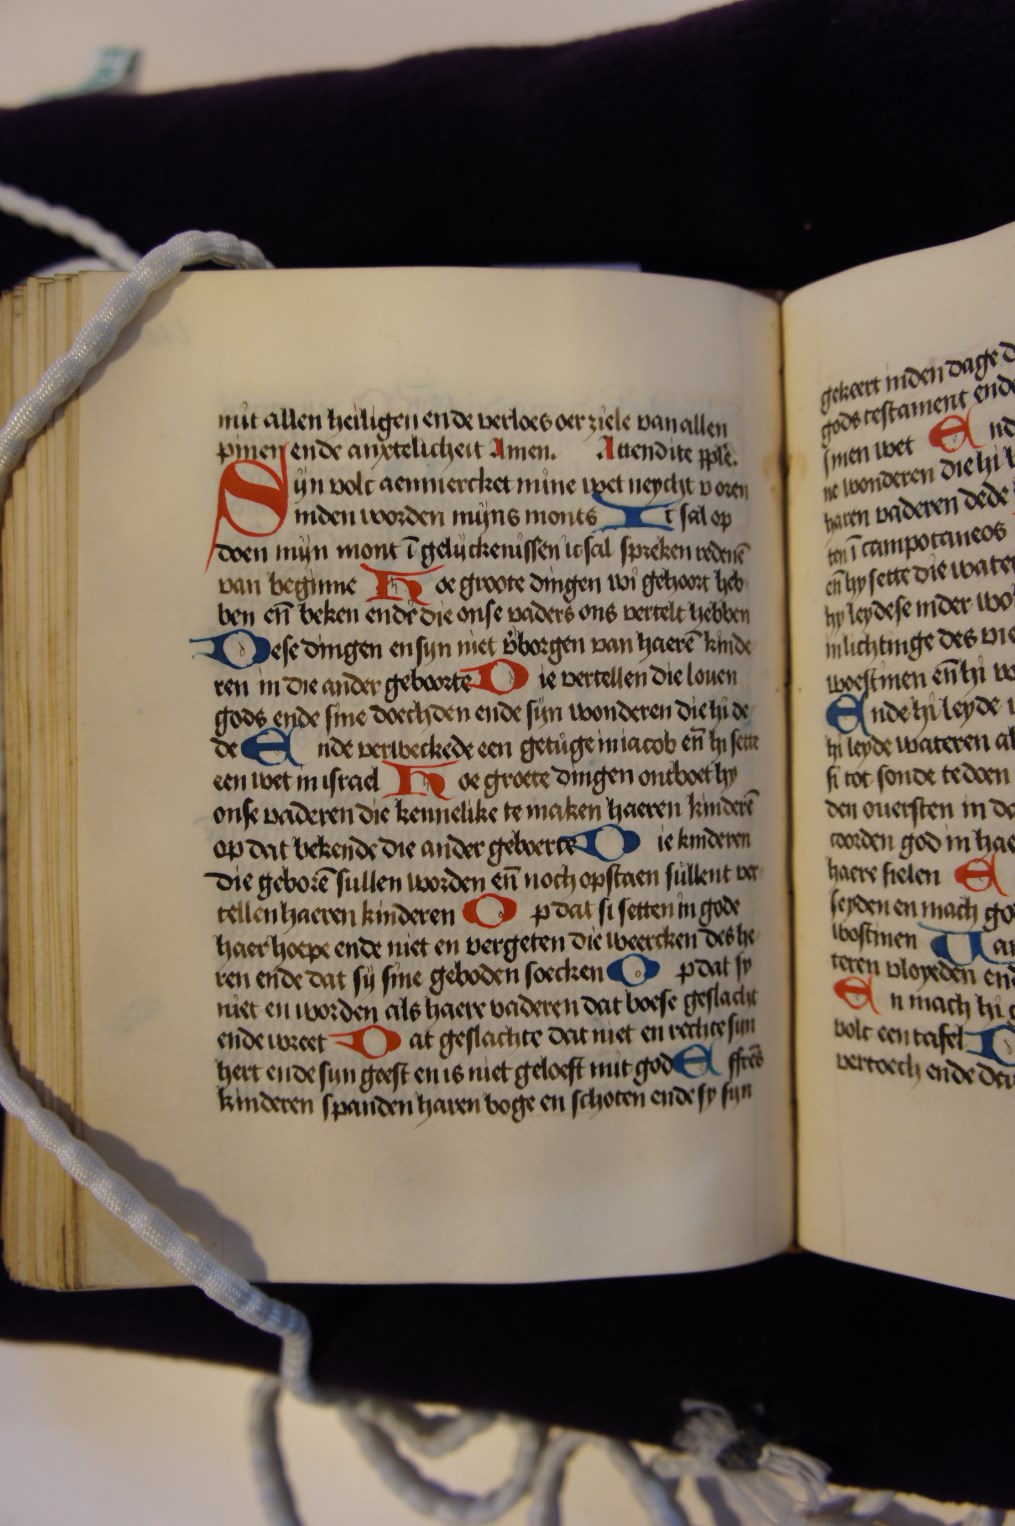 mit allen heiligen ende verloes oer ziele van allen
pinen ende anxtelicheit Amen. Attendite pple.
Sijn volc aenmercket mine wet neycht v oren
inden worden mijns monts It sal op
doen mijn mont ī gelijckenissen ic sal spreken redenē
van beginne Hoe groote dingen wi gehoort heb
ben eñ beken ende die onse vaders ons vertelt hebben
Dese dingen en sijn niet v̄borgen van haerē kinde
ren in die ander geboorte Die vertellen die louen
gods ende sine doechden ende sijn wonderen die hi de
de Ende verweckede een getuge in iacob eñ hi sette
een wet in israel Hoe groete dingen ontboet hy
onse vaderen die kennelike te maken haeren kinderē
op dat bekende die ander geboerte Die kinderen
die geborē sullen worden eñ noch opstaen sullent ver
tellen haeren kinderen Op dat si setten in gode
haer hoepe ende niet en vergeten die weercken des he
ren ende dat sij sine geboden soecken Op dat sy
niet en worden als haere vaderen dat boese geslacht
ende wreet Dat geslachte dat niet en rechte sijn
hert ende sijn geest en is niet geloeft mit god Effrēs
kinderen spanden haren boge en schoten ende sy sijn
gekeert inden dage
gods testament ende
sinen wet End
ne wonderen die hi
haren vaderen dede
ten ī campotaneos
eñ hy sette die wate
hy leydese inder wo
in lichtinge des vie
woestinen eñ hi
Ende hi leyde
hi leyde wateren al
si tot sonde te doen
den ouersten in
coorden god in hae
haere sielen E
seyden en mach go
wostinen
teren vloyeden end
En mach hi
volc een tafel
vertoech ende